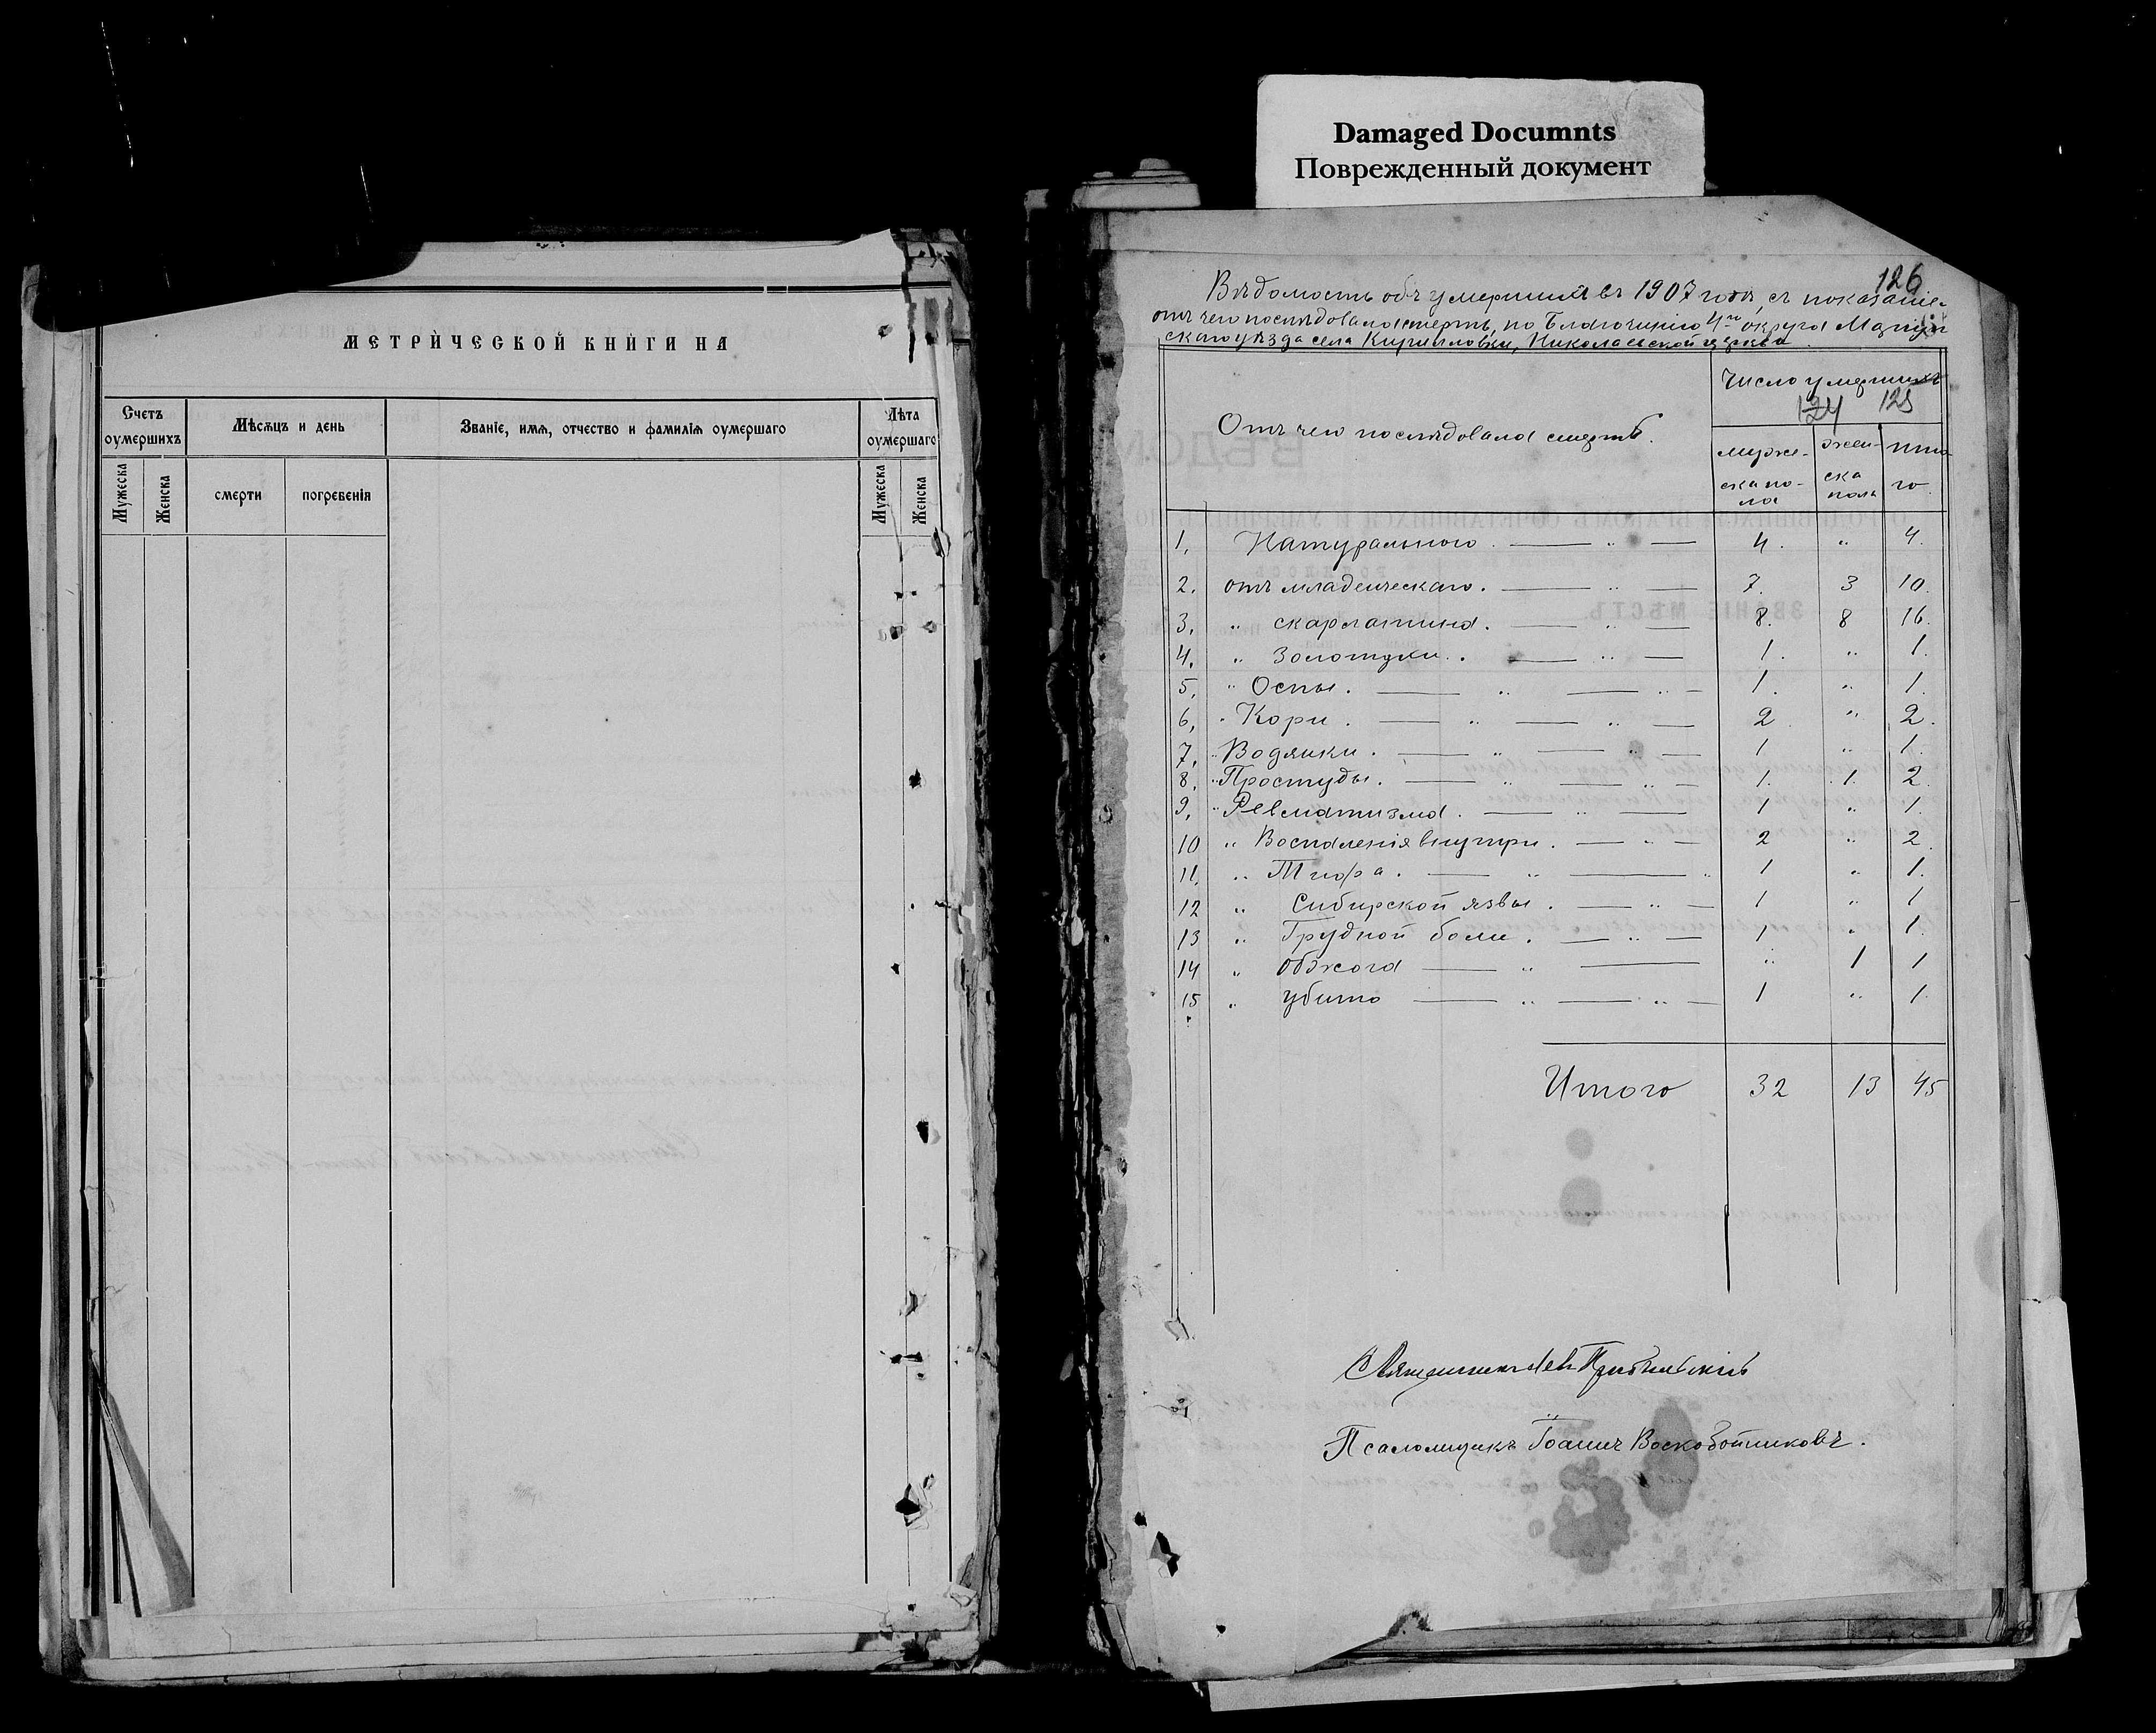 Damaged Documnts
Поврежденный документ
МЕТРИЧЕСКОЙ КНИГИ НА
Счетъ оумершихъ
Мѣсяцъ и день
Званіе, имя, отчество и фамилія оумершаго
Лѣта оумершаго
Мужеска
Женска
смерти
погребенія
Мужеска
Женска
126
Вѣдомость объ умершихъ въ 1907 году, съ показаніе-
отъ чего послѣдовала смерть, по Благочинію 4го округа
скаго уѣзда села Кирилловки, Николаевской церкви
Отъ чего послѣдовала смерть.
Число умершихъ
124 125
муже-
ска по-
ла
жен-
ска
пола
ито
го
1, Натурального. — „ — 4. „ 4.
2. отъ младенческаго. — „ — 7. 3 10.
3, „ скарлатина. — „ — 8. 8 16.
4, „ Золотухи. — „ — 1. „ 1.
5, „ Оспы. — „ — „ — 1. „ 1.
6, „ Кори. — „ — „ — 2 „ 2.
7, „ Водянки. — „ — „ — 1 „ 1.
8, „ Простуды. — „ — „ — 1. 1. 2.
9, „ Ревматизма. — „ — 1 „ 1.
10 „ Воспаленія внутри. — „ — 2 „ 2.
11, „ Тифа. — „ — „ 1 „ 1.
12 „ Сибирской язвы. — „ — 1 „ 1
13 „ Грудной боли. — „ — 1 „ 1.
14 „ Обжога — „ — „ 1 1
15 „ убито — „ — „ — 1 „ 1.
Итого 32 13 45
Священникъ Левъ
Псаломщикъ Іоаннъ Воскобойниковъ.